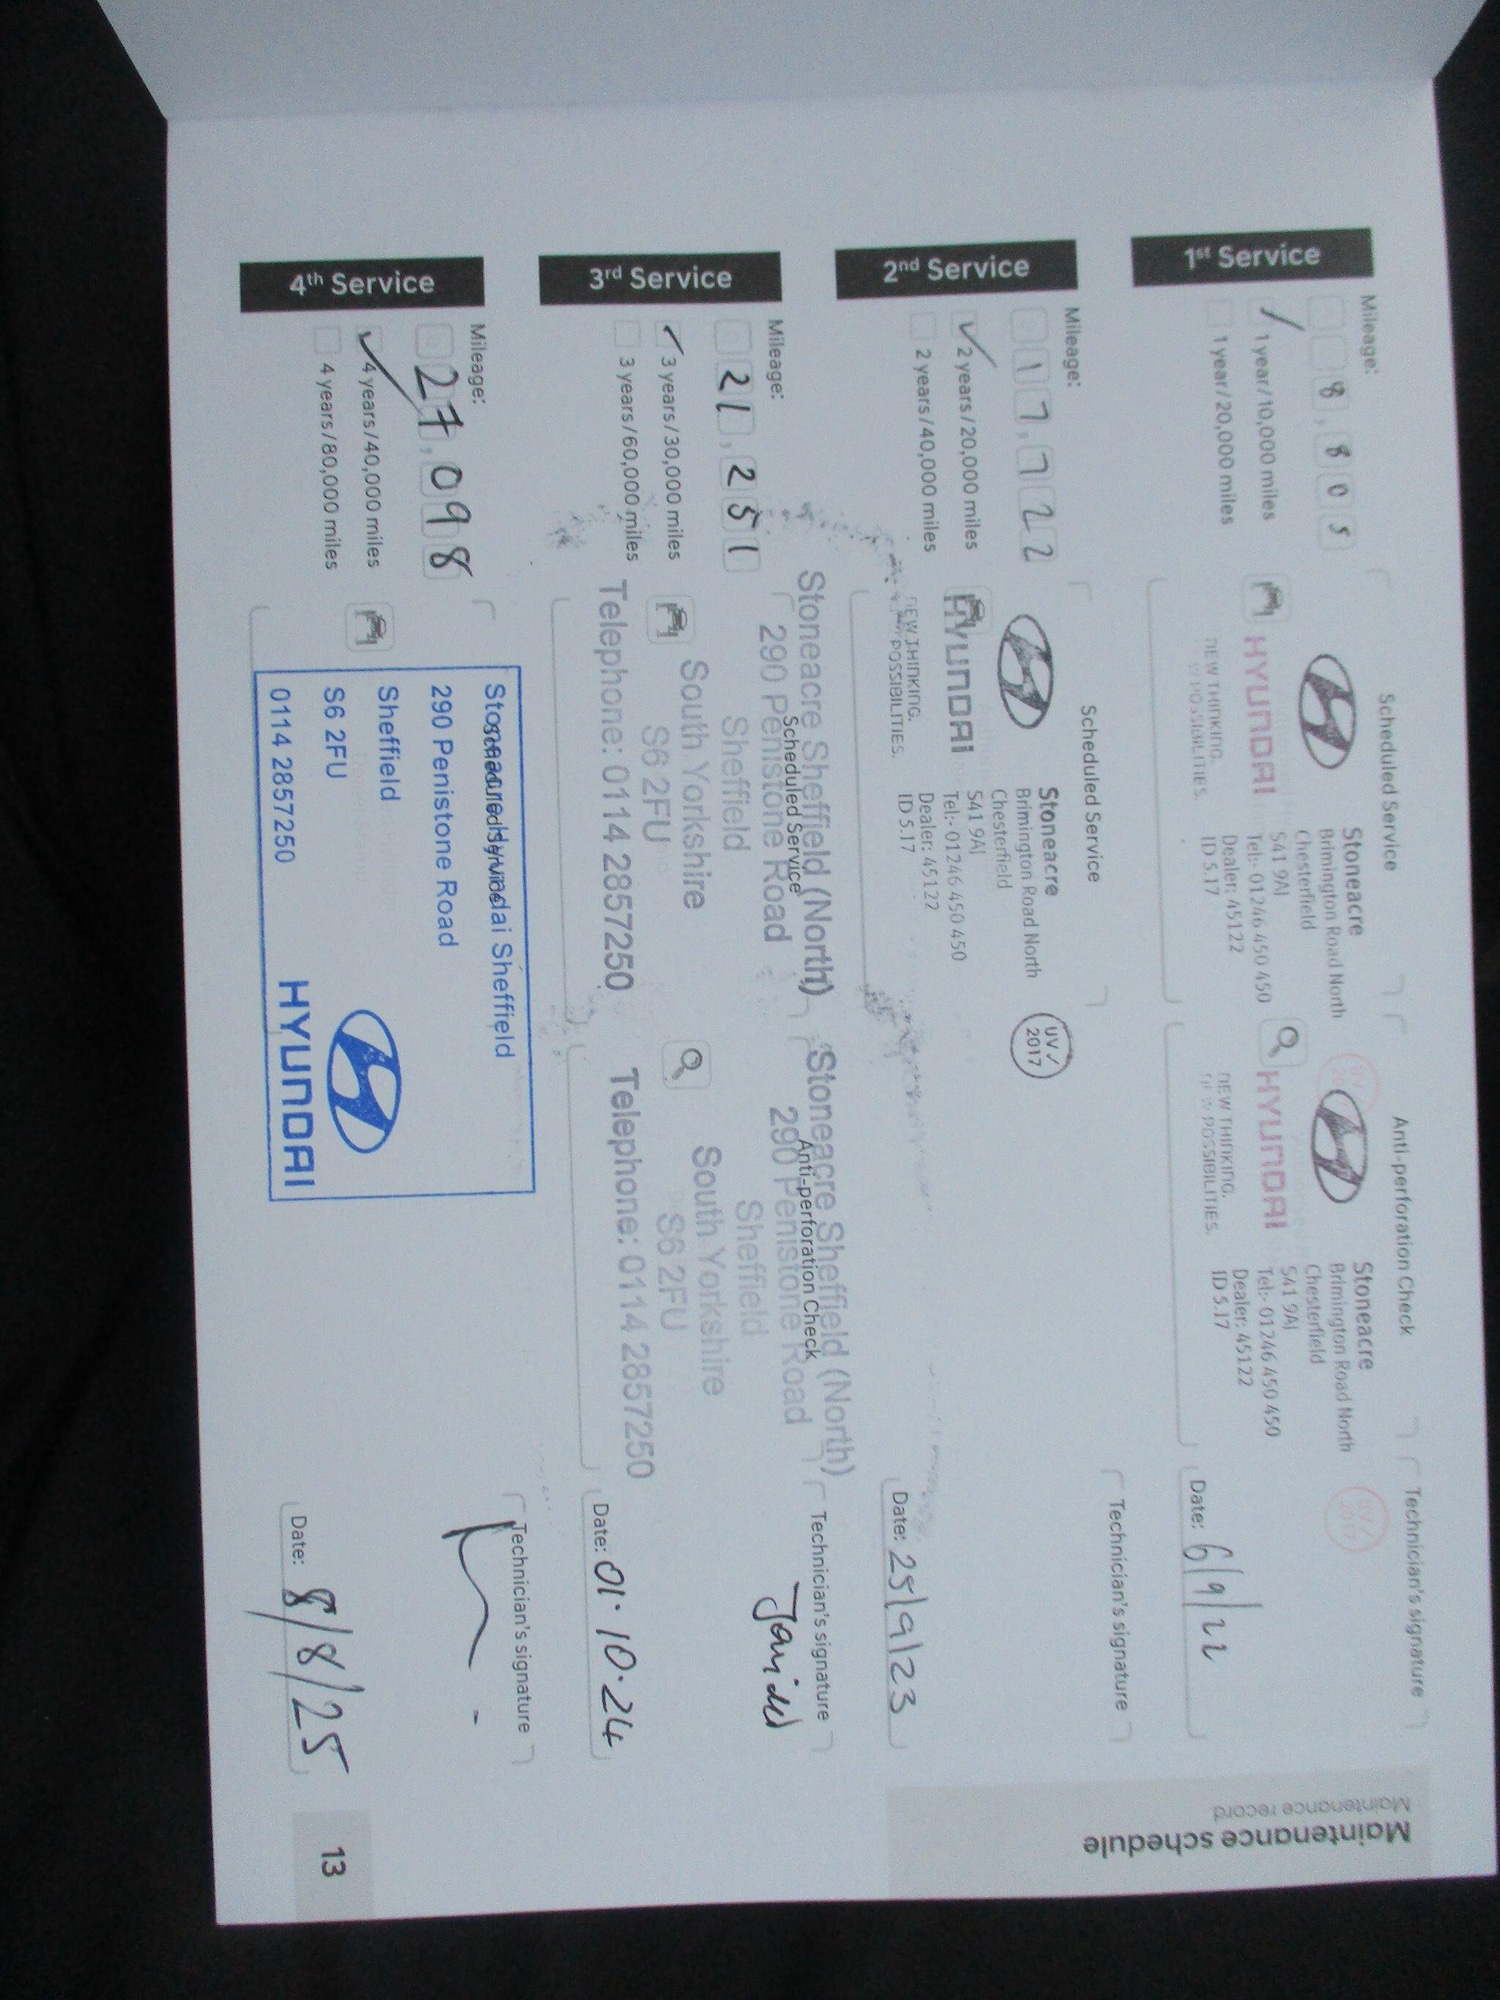 Maintenance schedule
Maintenance record
1st Service
Mileage:
8,805
1 year/10,000 miles
1 year/20,000 miles
Scheduled Service
HYUNDAI
NEW THINKING.
NEW POSSIBILITIES.
Stoneacre
Brimington Road North
Chesterfield
S41 9AJ
Tel:- 01246 450 450
Dealer: 45122
ID 5.17
Anti-perforation Check
HYUNDAI
NEW THINKING.
NEW POSSIBILITIES.
Stoneacre
Brimington Road North
Chesterfield
S41 9AJ
Tel:- 01246 450 450
Dealer: 45122
ID 5.17
Technician's signature
UV✓
2017
Date: 6/9/22
2nd Service
Mileage:
17,722
2 years/20,000 miles
2 years/40,000 miles
Scheduled Service
HYUNDAI
NEW THINKING.
POSSIBILITIES.
Stoneacre
Brimington Road North
Chesterfield
S41 9AJ
Tel:- 01246 450 450
Dealer: 45122
ID 5.17
UV✓
2017
Technician's signature
Date: 25/9/23
3rd Service
Mileage:
21,251
3 years/30,000 miles
3 years/60,000 miles
Scheduled Service
Stoneacre Sheffield (North)
290 Penistone Road
Sheffield
South Yorkshire
S6 2FU
Telephone: 0114 2857250
Anti-perforation Check
Stoneacre Sheffield (North)
290 Penistone Road
Sheffield
South Yorkshire
S6 2FU
Telephone: 0114 2857250
Technician's signature
Date: 01.10.24
4th Service
Mileage:
27,098
4 years/40,000 miles
4 years/80,000 miles
Scheduled Service
Stoneacre Hyundai Sheffield
290 Penistone Road
Sheffield
S6 2FU
0114 2857250
HYUNDAI
Technician's signature
Date: 8/8/25
13